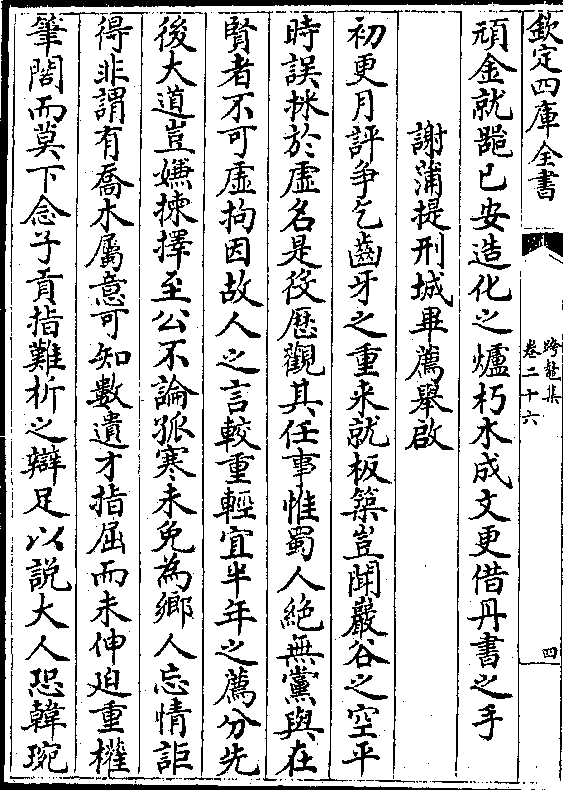 欽定四庫全書
跨鼇集
卷二十六
四
頑金就器已安造化之爐朽木成文更借丹書之手
謝蒲提刑城畢薦舉啟
初更月評爭乞齒牙之重來就板築豈聞巖谷之空平
時誤採於虛名是役歴觀其任事惟蜀人絶無黨與在
賢者不可虛拘因故人之言較重輕宜半年之薦分先
後大道豈嫌揀擇至公不論孤寒未免為鄉人忘情詎
得非謂有喬木屬意可知數遺才指屈而未伸迫重權
筆閣而莫下念子貢指難析之辯足以說大人恐韓琬